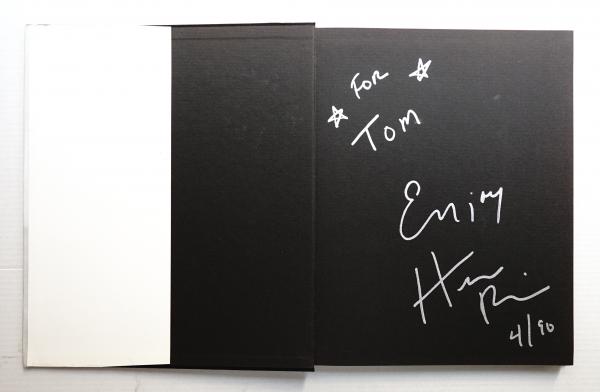 FOR
TOM
Enjoy
4/90